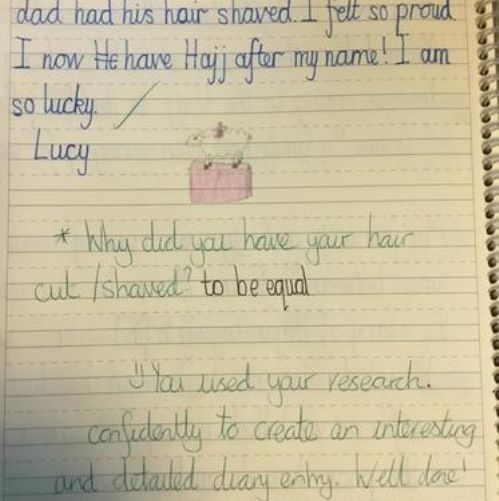 dad had his hair shaved. I felt so proud
I now He have Hajj after my name! I am
so lucky.
Lucy
* Why did you have your hair
cut / shaved? to be equal
You used your research.
confidently to create an interesting
and detailed diary entry. Well done!